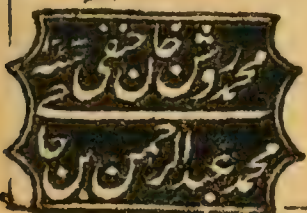 محمد روشن خان حنفی
محمد عبدالرحمن بن حا